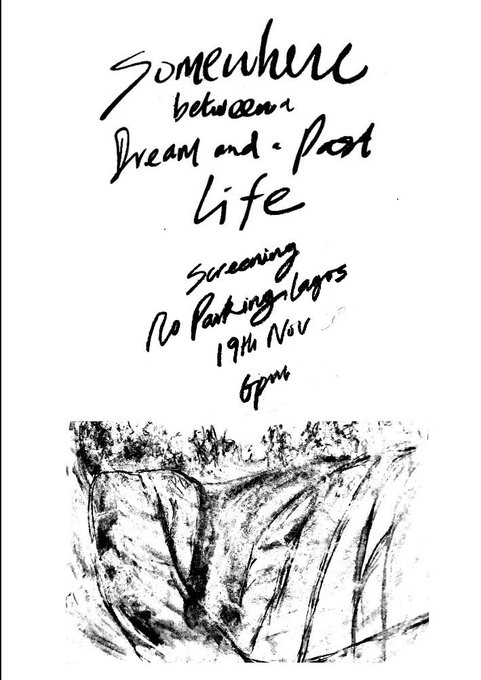 Somewhere
between a
Dream and a Past
Life
Screening
No Parking, Lagos
19th Nov
6pm